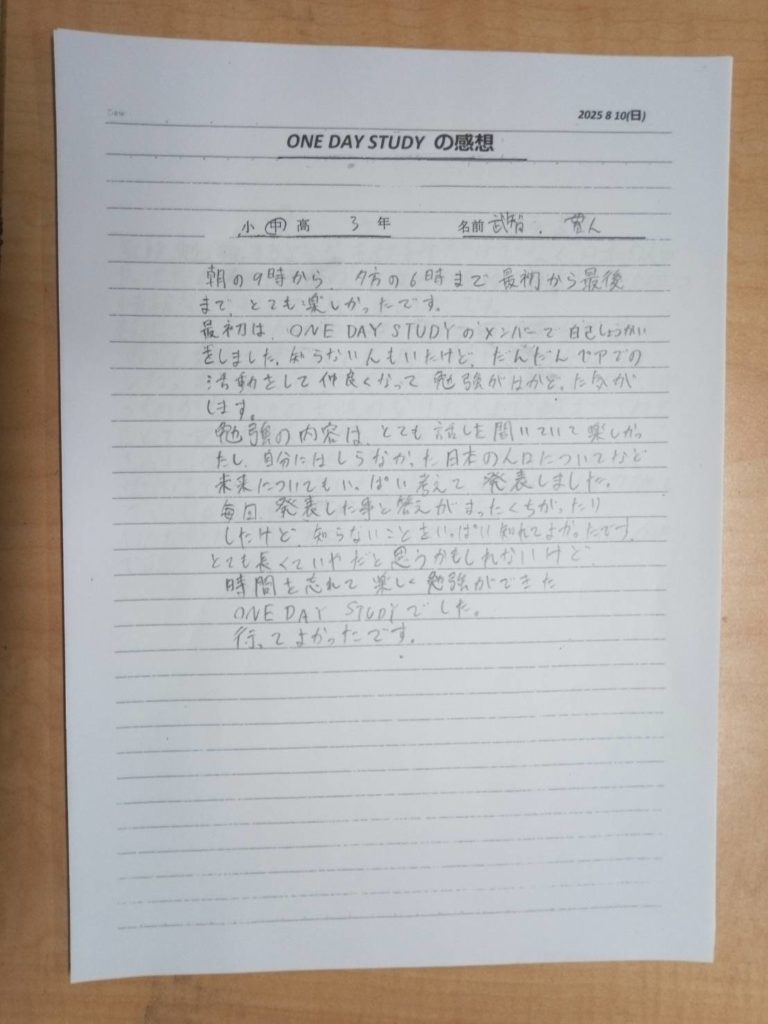 Date
2025 8 10(日)
ONE DAY STUDY の感想
小 中 高 3 年 名前 武智 . 人
朝の9時から、夕方の6時まで最初から最後
まで、とても楽しかったです。
最初は、ONE DAY STUDYのメンバーで自己しょうかい
をしました。知らない人もいたけど、だんだんペアでの
活動をして仲良くなって勉強がはかどった気が
します。
勉強の内容は、とても話しを聞いていて楽しかっ
たし、自分にはしらなかった日本の人口についてなど
未来についてもいっぱい考えて発表しました。
毎回、発表した事と答えがまったくちがったり
したけど、知らないことをいっぱい知れてよかったです。
とても長くていやだと思うかもしれないけど、
時間を忘れて楽しく勉強ができた
ONE DAY STUDYでした。
行ってよかったです。